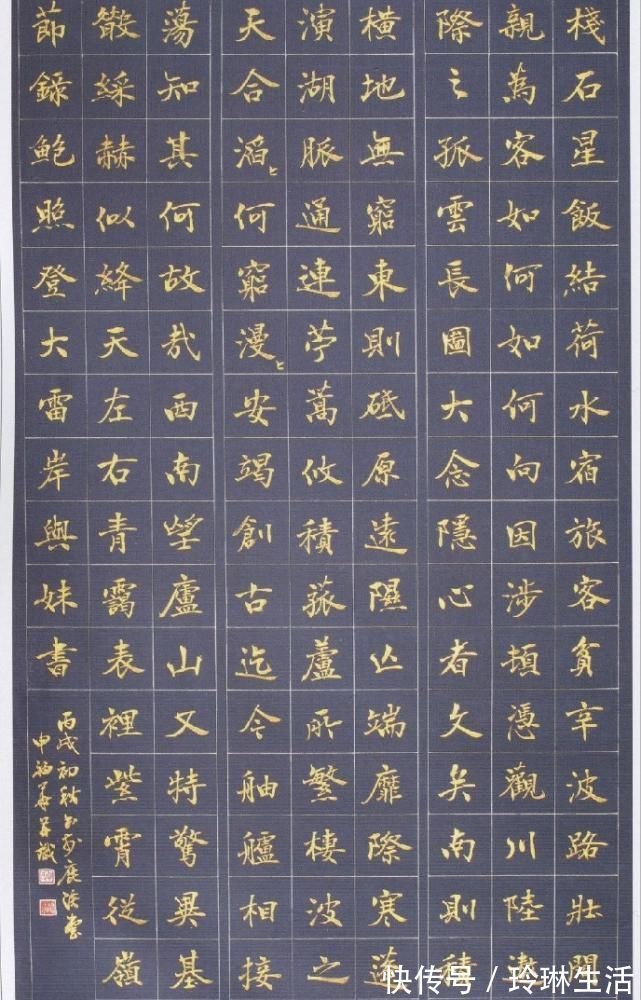 棧石星飯結荷水宿旅客貧辛波路壯闊
親為客如何如何向因涉頓憑觀川陸遨
際之孤雲長圖大念隱心者久矣南則積
橫地無窮東則砥原遠隰亡端靡際寒蓬
演湖脈通連苧蒿攸積菰蘆所繁棲波之
天合滔〻何窮漫〻安竭創古迄今舳艫相接
蕩知其何故哉西南望廬山又特驚異基
散綵赫似絳天左右青靄表裡紫霄從嶺
節錄鮑照登大雷岸與妹書
丙戌初秋
申
快传号 / 玲琳生活